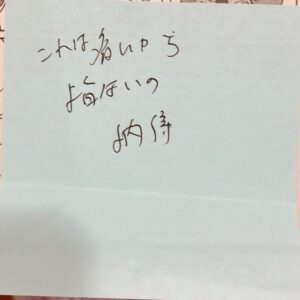 これは痛いから
指ないの
納得